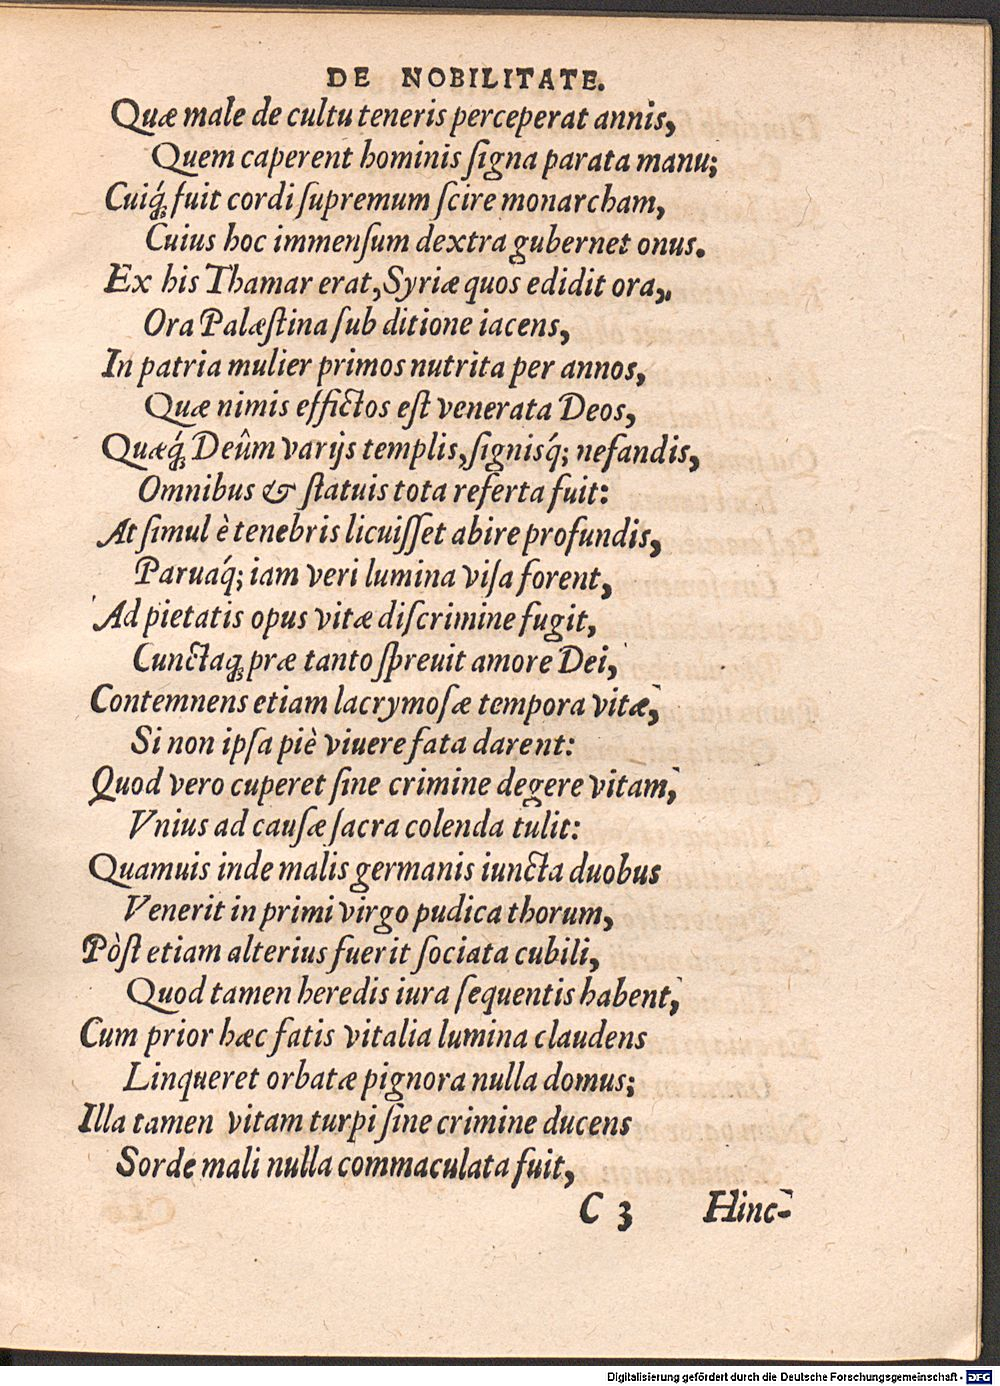 DE NOBILITATE.
Quæ male de cultu teneris perceperat annis,
Quem caperent hominis ſigna parata manu;
Cuiq́ꝫ fuit cordi ſupremum ſcire monarcham,
Cuius hoc immenſum dextra gubernet onus.
Ex his Thamar erat, Syriæ quos edidit ora,
Ora Palæſtina ſub ditione iacens,
In patria mulier primos nutrita per annos,
Quæ nimis effictos eſt venerata Deos,
Quæq́ꝫ Deûm varijs templis, ſignisq́; nefandis,
Omnibus & ſtatuis tota referta fuit:
At ſimul è tenebris licuiſſet abire profundis,
Paruaq́; iam veri lumina viſa forent,
Ad pietatis opus vitæ diſcrimine fugit,
Cunctaqꝫ præ tanto ſpreuit amore Dei,
Contemnens etiam lacrymoſæ tempora vitæ,
Si non ipſa piè viuere fata darent:
Quod vero cuperet ſine crimine degere vitam,
Vnius ad cauſæ ſacra colenda tulit:
Quamuis inde malis germanis iuncta duobus
Venerit in primi virgo pudica thorum,
Pòſt etiam alterius fuerit ſociata cubili,
Quod tamen heredis iura ſequentis habent,
Cum prior hæc fatis vitalia lumina claudens
Linqueret orbatæ pignora nulla domus;
Illa tamen vitam turpi ſine crimine ducens
Sorde mali nulla commaculata fuit,
C 3 Hinc-
Digitalisierung gefördert durch die Deutsche Forschungsgemeinschaft - DFG